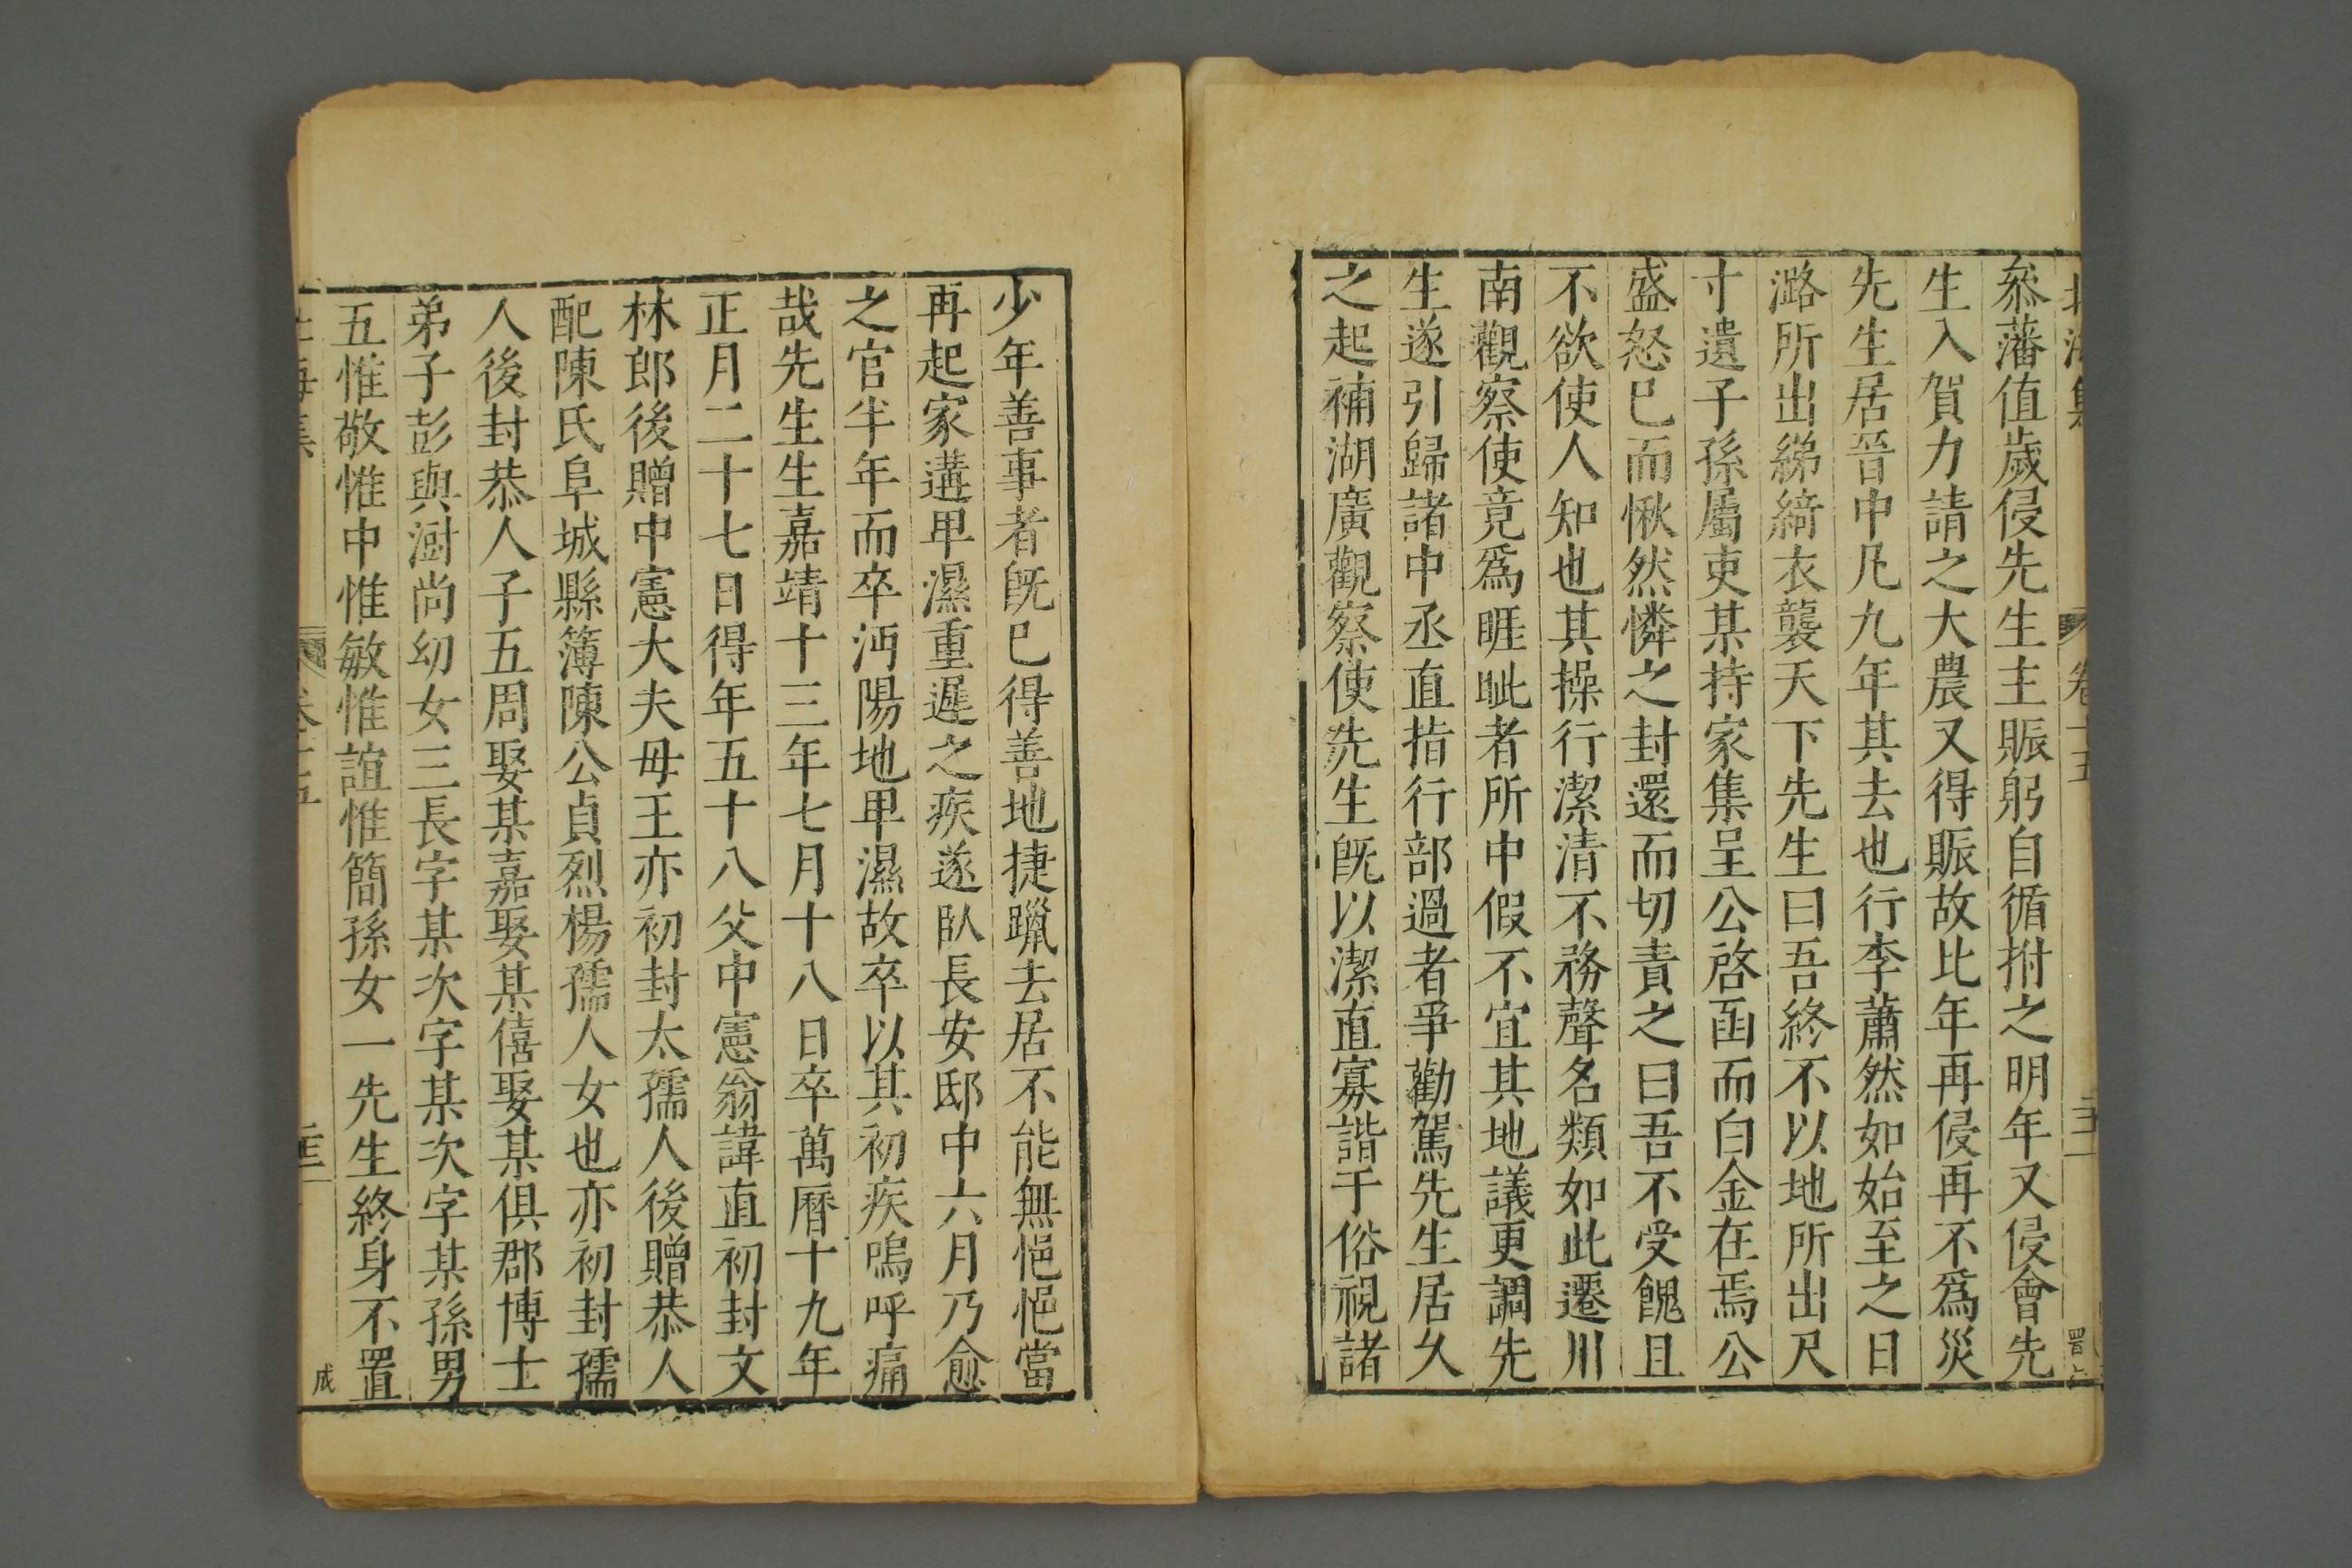 北海集 卷十五
叅藩值歲侵先生主賑躬自循拊之明年又侵會先
生入賀力請之大農又得賑故比年再侵再不爲災
先生居晉中凡九年其去也行李蕭然如始至之日
潞所出綈綺衣襲天下先生曰吾終不以地所出尺
寸遺子孫屬吏某持家集呈公啓函而白金在焉公
盛怒巳而愀然憐之封還而切責之曰吾不受餽且
不欲使人知也其操行潔清不務聲名類如此遷川
南觀察使竟爲睚眦者所中假不宜其地議更調先
生遂引歸諸中丞直指行部過者爭勸駕先生居久
之起補湖廣觀察使先生旣以潔直寡諧于俗視諸
少年善事者旣巳得善地捷躐去居不能無悒悒當
再起家遘甲濕重遲之疾遂臥長安邸中六月乃愈
之官半年而卒沔陽地甲濕故卒以其初疾嗚呼痛
哉先生生嘉靖十三年七月十八日卒萬曆十九年
正月二十七日得年五十八父中憲翁諱直初封文
林郎後贈中憲大夫母王亦初封太孺人後贈恭人
配陳氏阜城縣簿陳公貞烈楊孺人女也亦初封孺
人後封恭人子五周娶某嘉娶某僖娶某俱郡博士
弟子彭與澍尚幼女三長字某次字某次字某孫男
五惟敬惟中惟敏惟誼惟簡孫女一先生終身不置
成